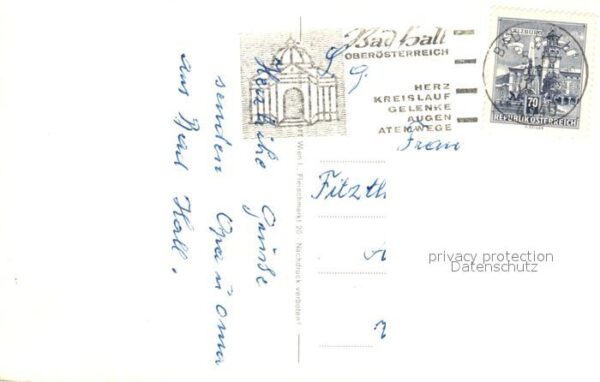 Herzliche Grüße
senden Opa u Oma
aus Bad Hall.
Bad Hall
OBERÖSTERREICH
HERZ
KREISLAUF
GELENKE
AUGEN
ATEMWEGE
SALZBURG
70
REPUBLIK ÖSTERREICH
Wien I., Fleischmarkt 20 · Nachdruck verboten!
Frau
Fitzth
privacy protection
Datenschutz